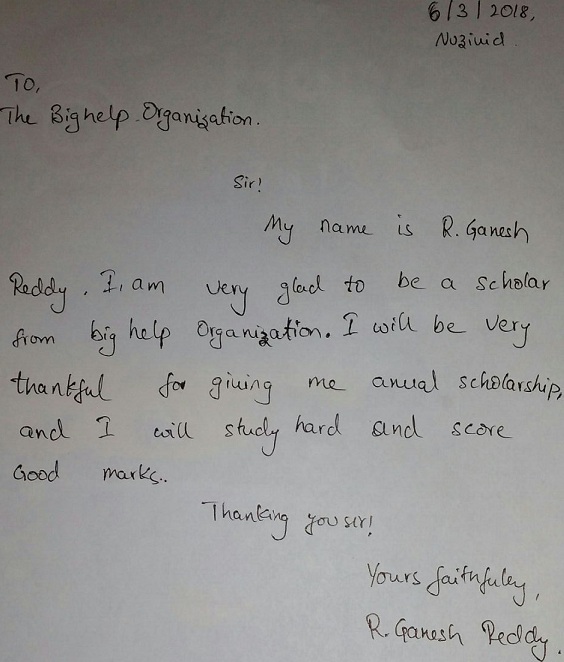 6/3/2018,
Nuzivid.
To,
The Big help Organization.
Sir!
My name is R. Ganesh
Reddy. I, am very glad to be a scholar
from big help Organization. I will be very
thankful for giving me anual scholarship,
and I will study hard and score
Good marks..
Thanking you sir!
Yours faithfuley,
R. Ganesh Reddy.